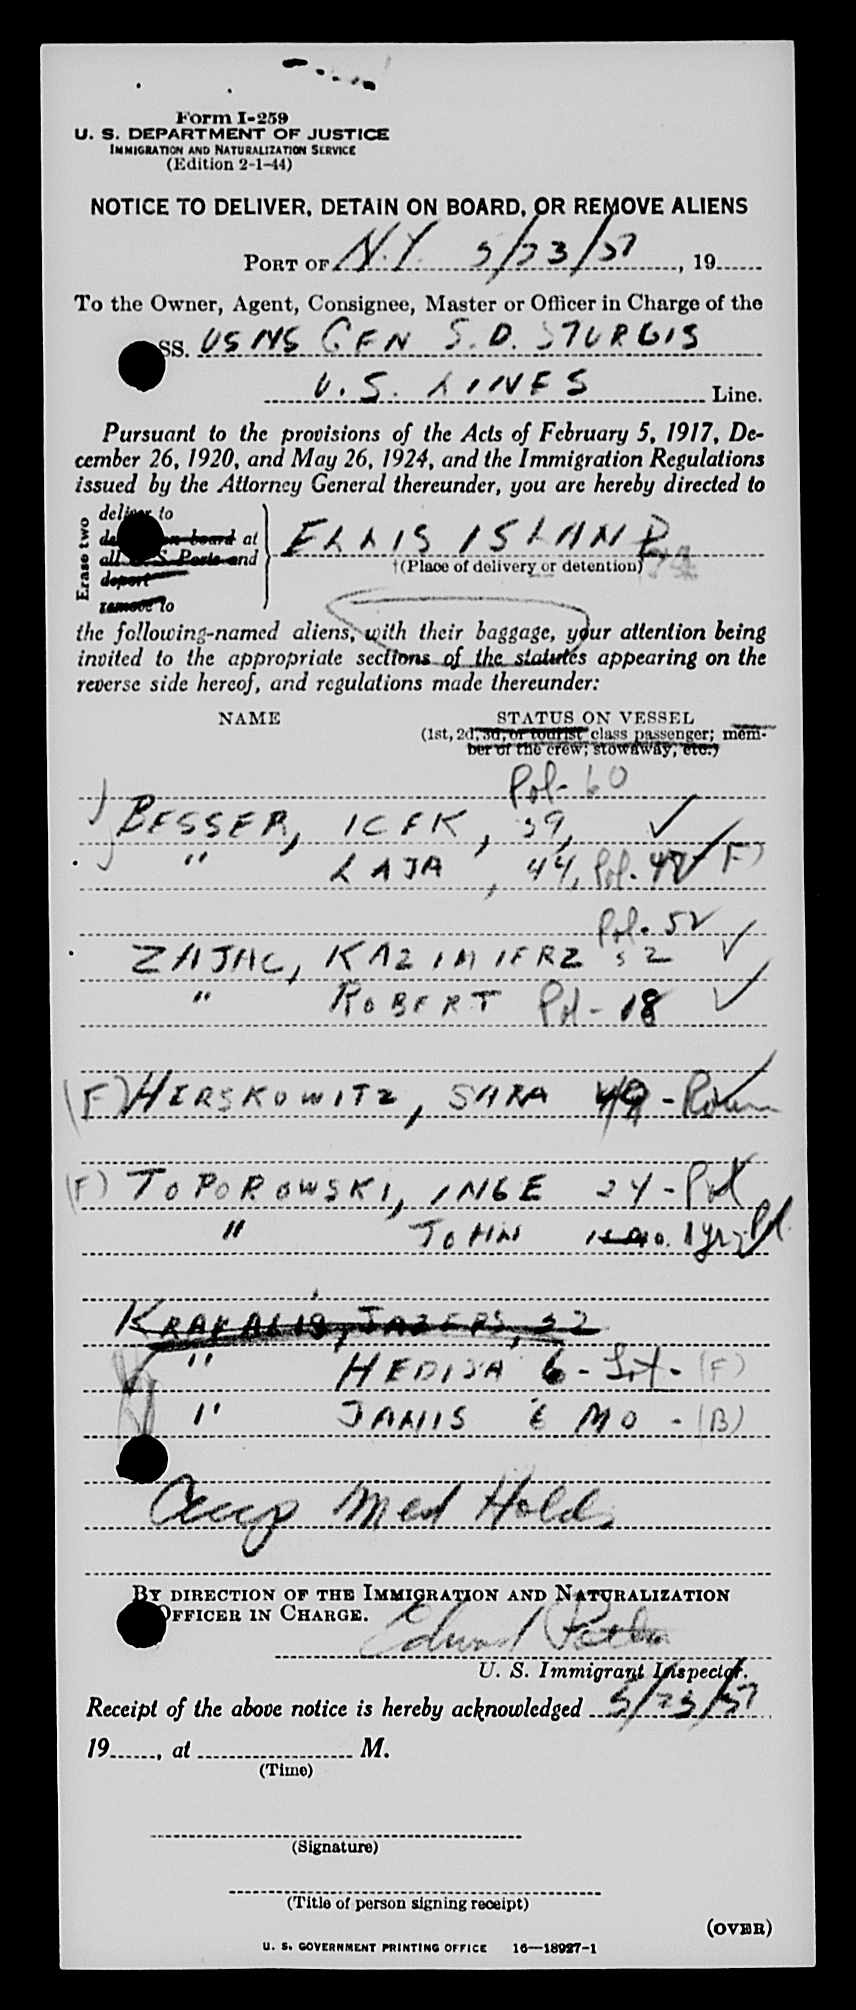 Form I-259
U. S. DEPARTMENT OF JUSTICE
IMMIGRATION AND NATURALIZATION SERVICE
(Edition 2-1-44)
NOTICE TO DELIVER, DETAIN ON BOARD, OR REMOVE ALIENS
PORT OF N.Y. 5/23/51, 19
To the Owner, Agent, Consignee, Master or Officer in Charge of the
SS. USNS GEN S.D. STURGIS
U.S. LINES Line.
Pursuant to the provisions of the Acts of February 5, 1917, De-
cember 26, 1920, and May 26, 1924, and the Immigration Regulations
issued by the Attorney General thereunder, you are hereby directed to
Erase two
deliver to
on board at
all U. S. Ports and
deport
remove to
ELLIS ISLAND
(Place of delivery or detention)
the following-named aliens, with their baggage, your attention being
invited to the appropriate sections of the statutes appearing on the
reverse side hereof, and regulations made thereunder:
NAME STATUS ON VESSEL
(1st, 2d, 3d, or tourist class passenger; mem-
ber of the crew; stowaway, etc.)
Pol- 60
BESSER, ICEK, 59,
" LAJA, 44, Pol. 48 (F)
Pol. 52
ZAJAC, KAZIMIERZ 52
" ROBERT Pol - 18
(F) HERSKOWITZ, SARA 49 - Roum
(F) TOPOROWSKI, INGE 24 - Pol
" JOHN 1 yr - Pol.
KRAKALIS, JAZEPS, 32
" HEDIJA 6 - Lat - (F)
" JANIS 6 MO - (B)
Accp Med Holds
BY DIRECTION OF THE IMMIGRATION AND NATURALIZATION
OFFICER IN CHARGE.
Edward
U. S. Immigrant Inspector.
Receipt of the above notice is hereby acknowledged 5/23/51
19, at M.
(Time)
(Signature)
(Title of person signing receipt)
(OVER)
U. S. GOVERNMENT PRINTING OFFICE 16—18927-1